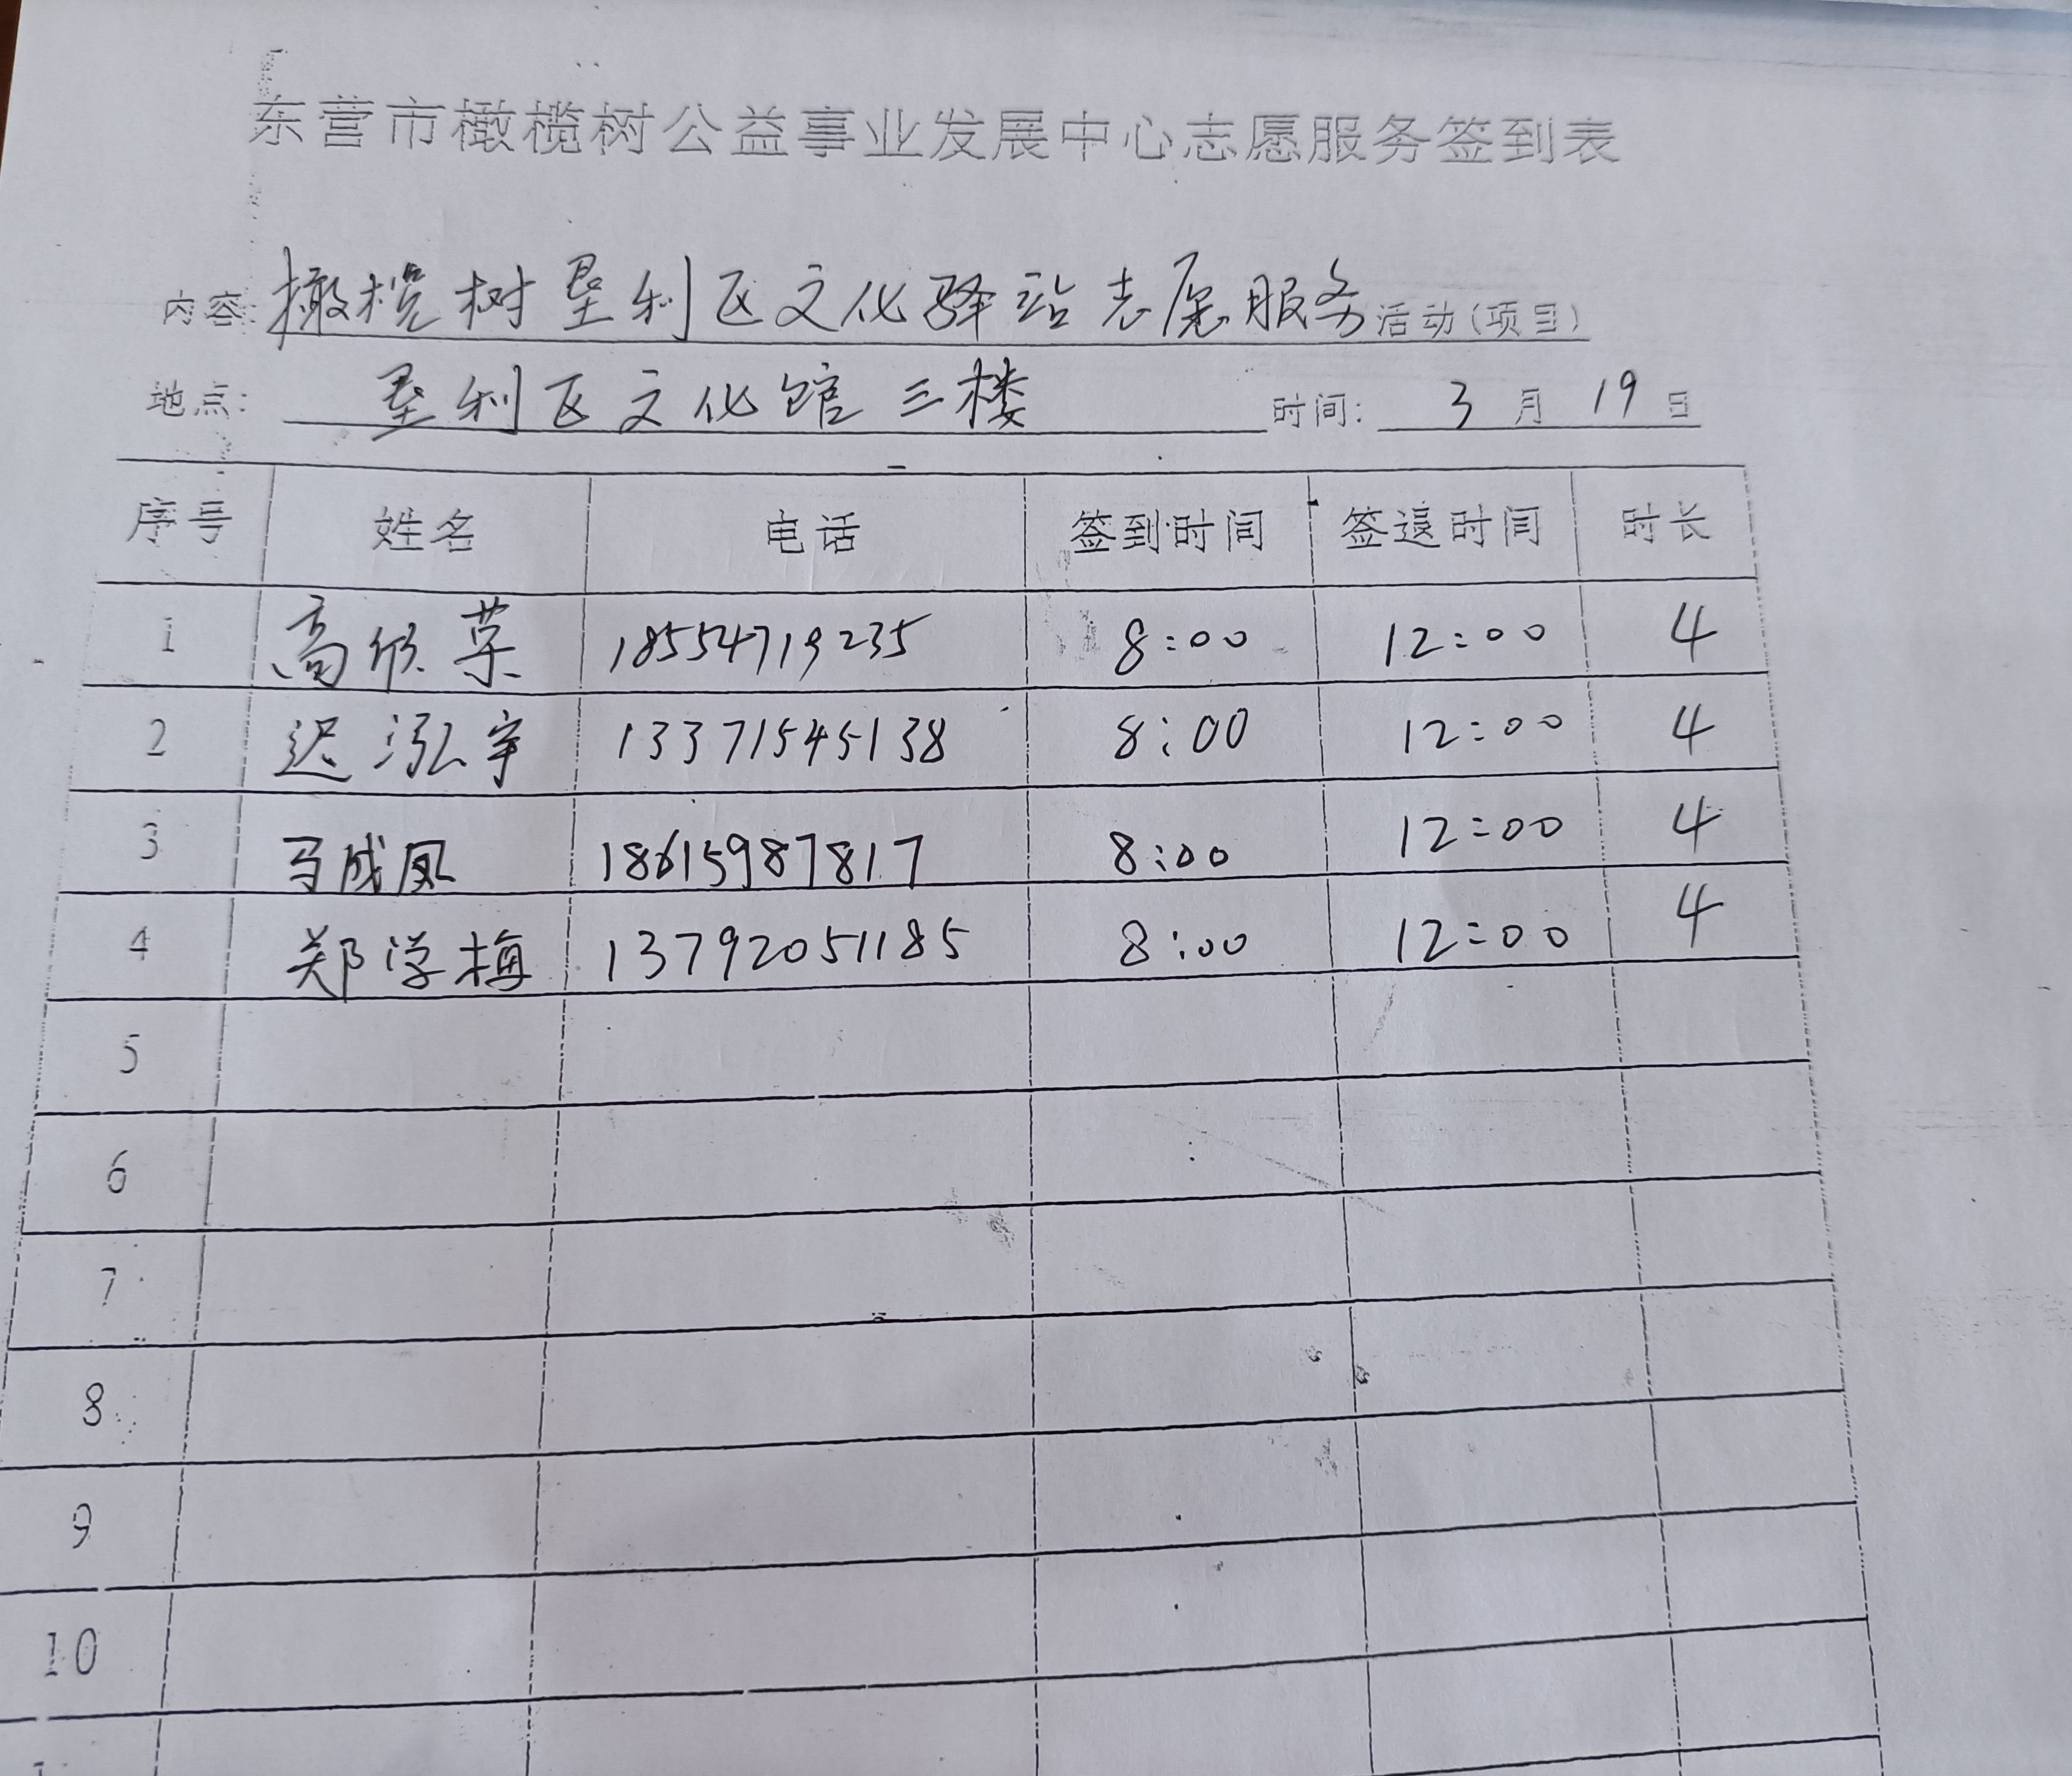 东营市橄榄树公益事业发展中心志愿服务签到表
内容: 橄榄树垦利区文化驿站志愿服务活动(项目)
地点: 垦利区文化馆三楼 时间: 3月19日
序号 姓名 电话 签到时间 签退时间 时长
1 高欣荣 18554719235 8:00 12:00 4
2 迟泓宇 13371545138 8:00 12:00 4
3 马成凤 18615987817 8:00 12:00 4
4 郑学梅 13792051185 8:00 12:00 4
5
6
7
8
9
10